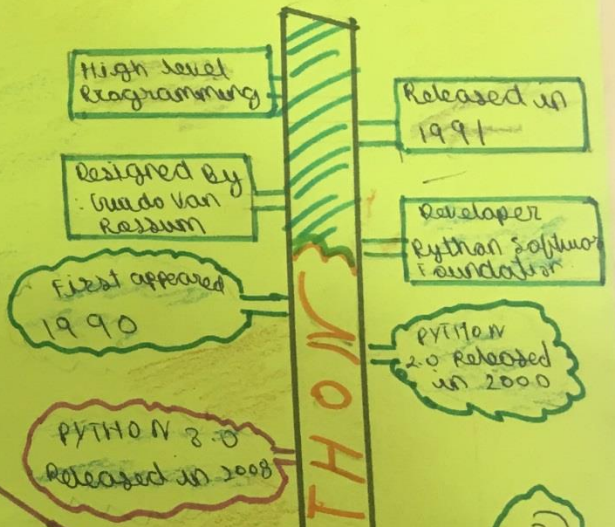 High level
Programming
Released in
1991
Designed By
: Guado Van
Rossum
Developer
Python Softwar
Foundation
First appeared
1990
PYTHON
2.0 Released
in 2000
PYTHON 3.0
Released in 2008
THON